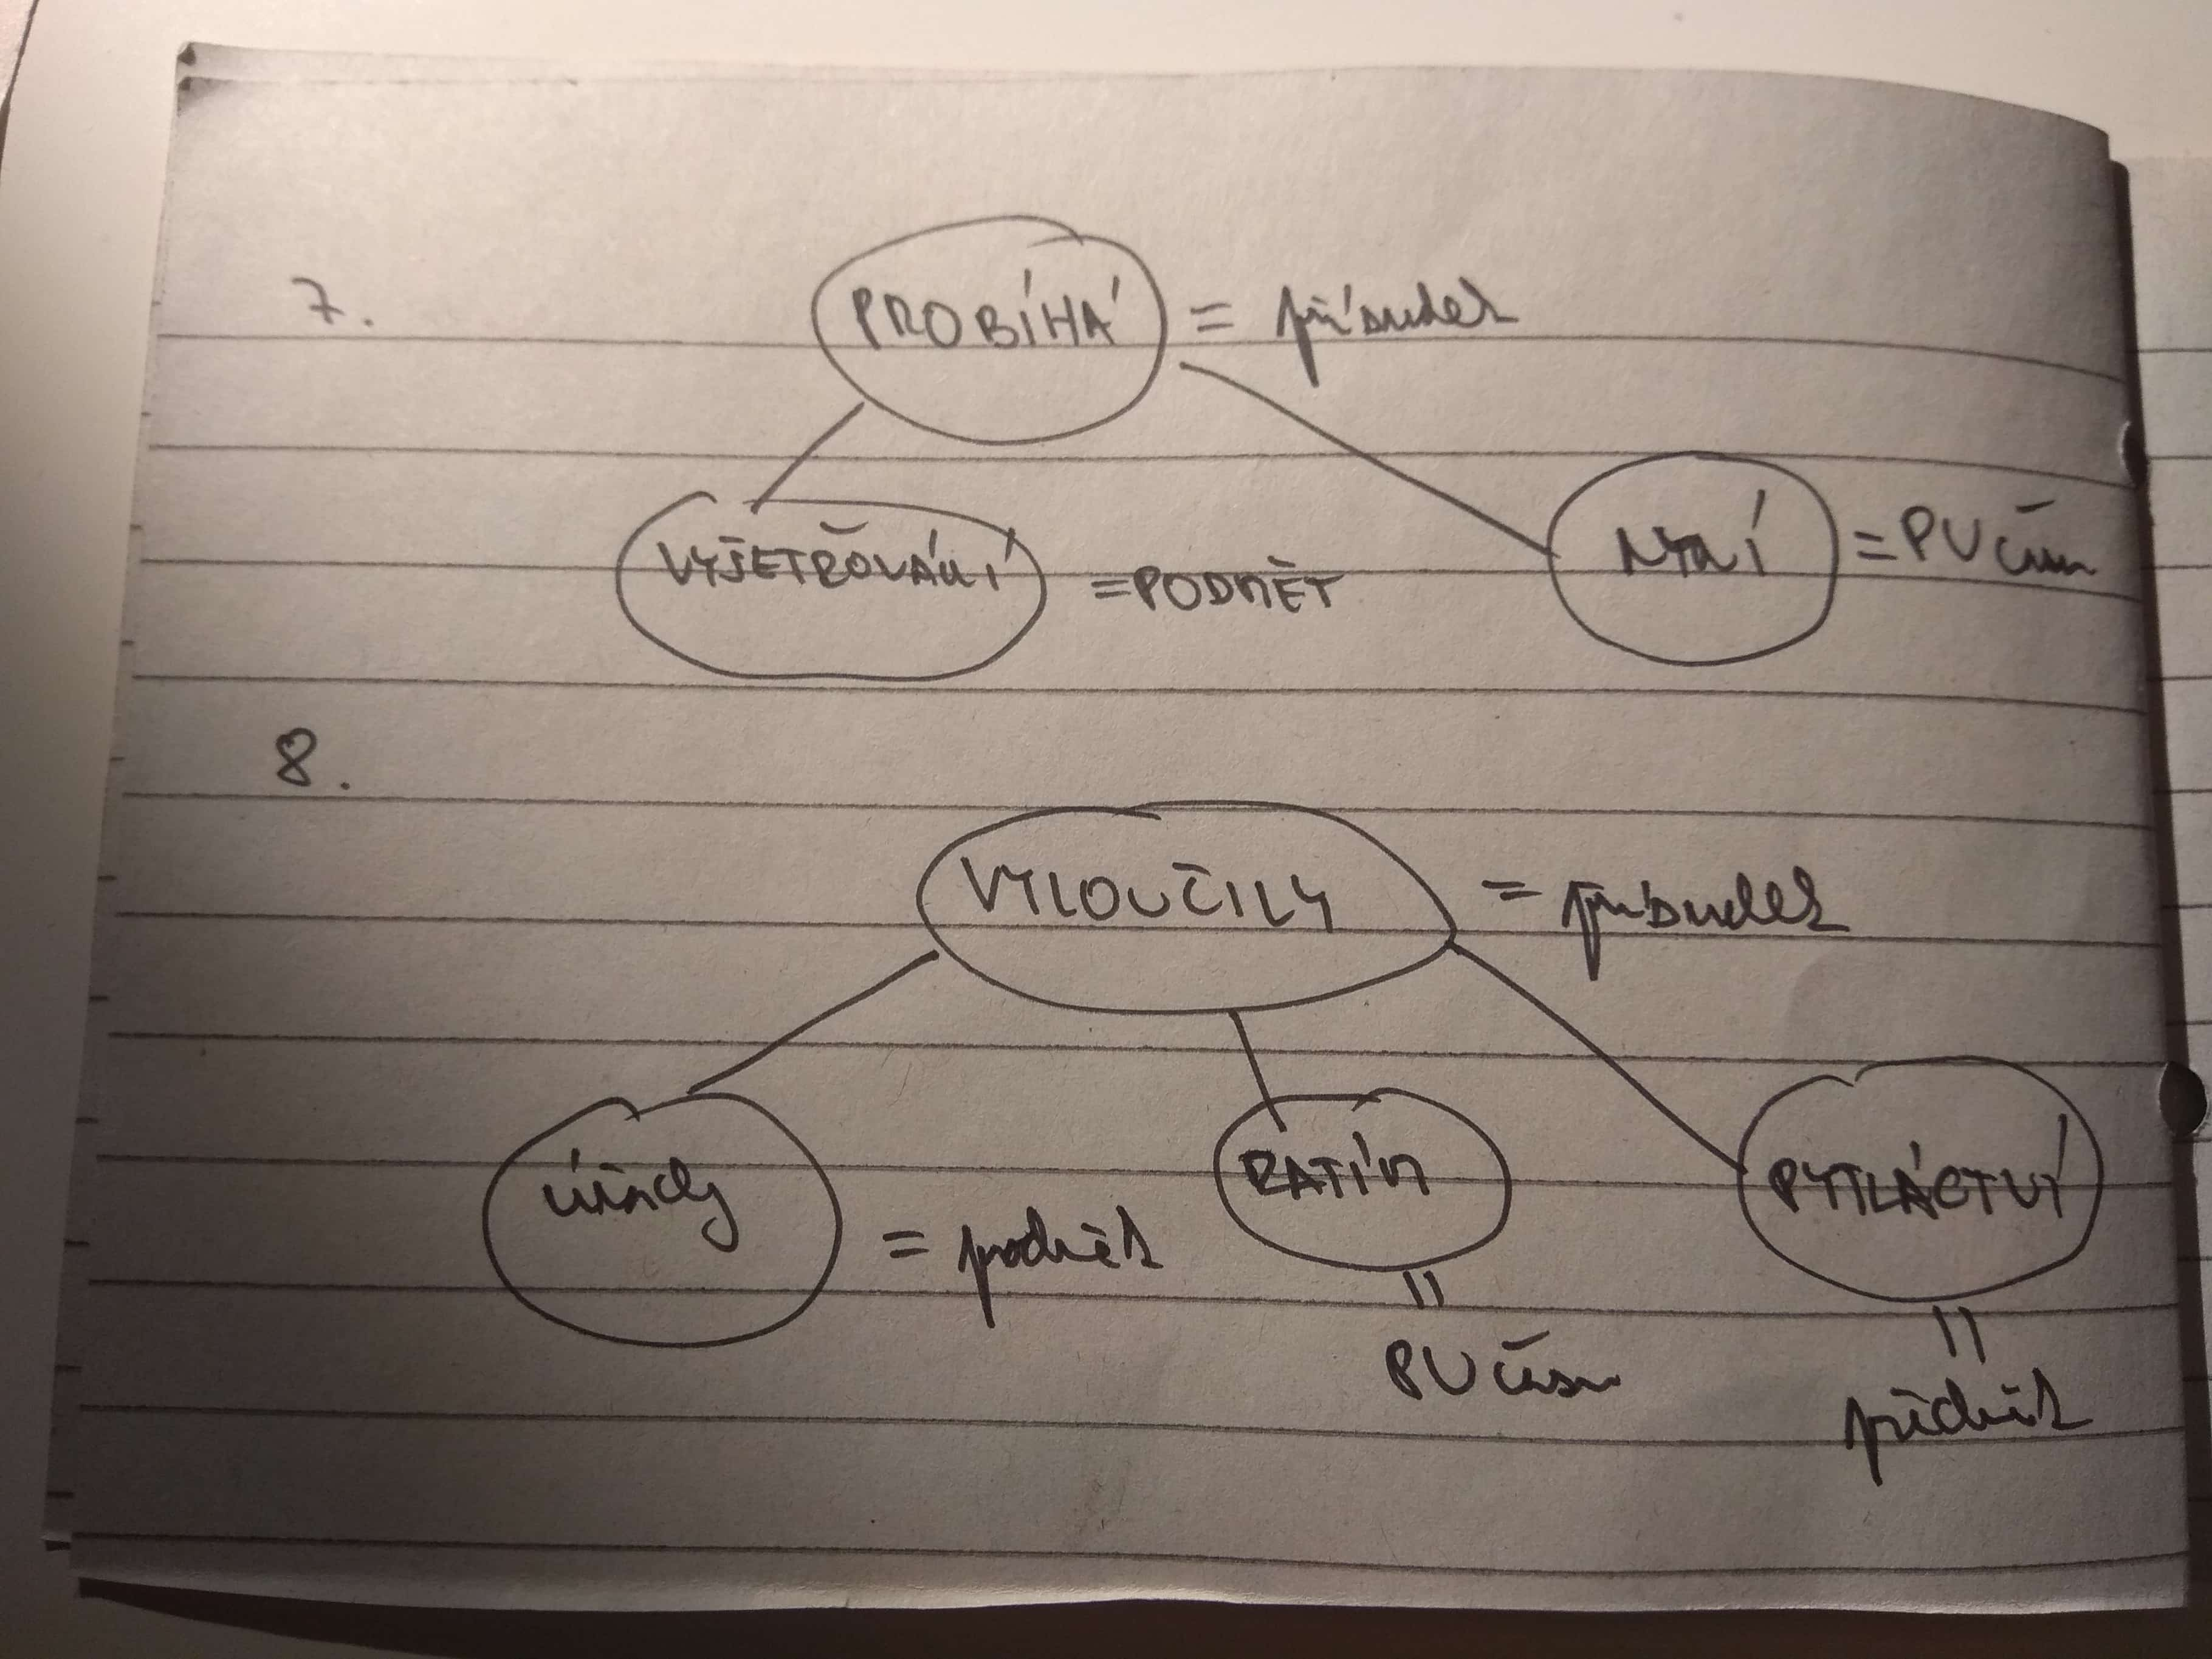 7.
PROBÍHÁ = přísudek
VYŠETŘOVÁNÍ = PODMĚT
NYNÍ = PU času
8.
VYLOUČILY = přísudek
úřady = podmět
ZATÍM
=
PU času
PYTLÁCTVÍ
=
předmět